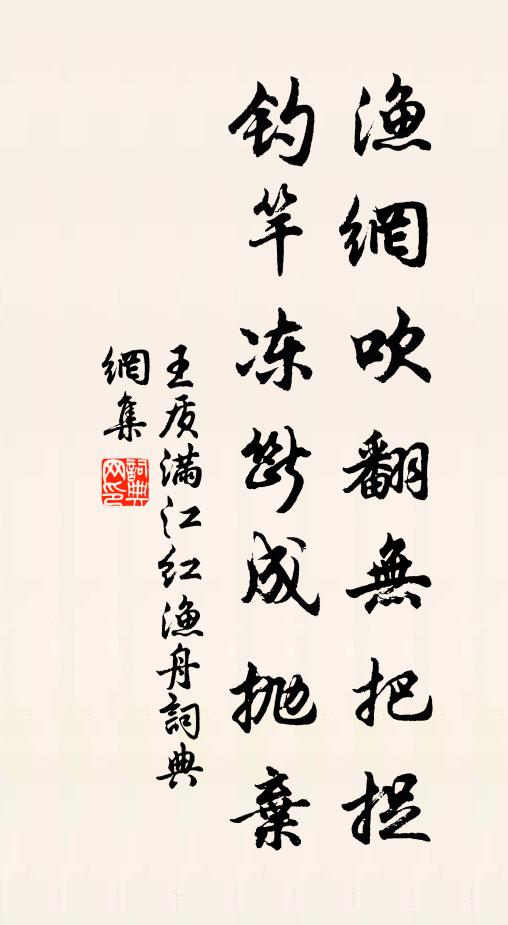 渔網吹翻無把捉
钓竿冻断成抛棄
王质满江红渔舟詞典
網集
詞典网印